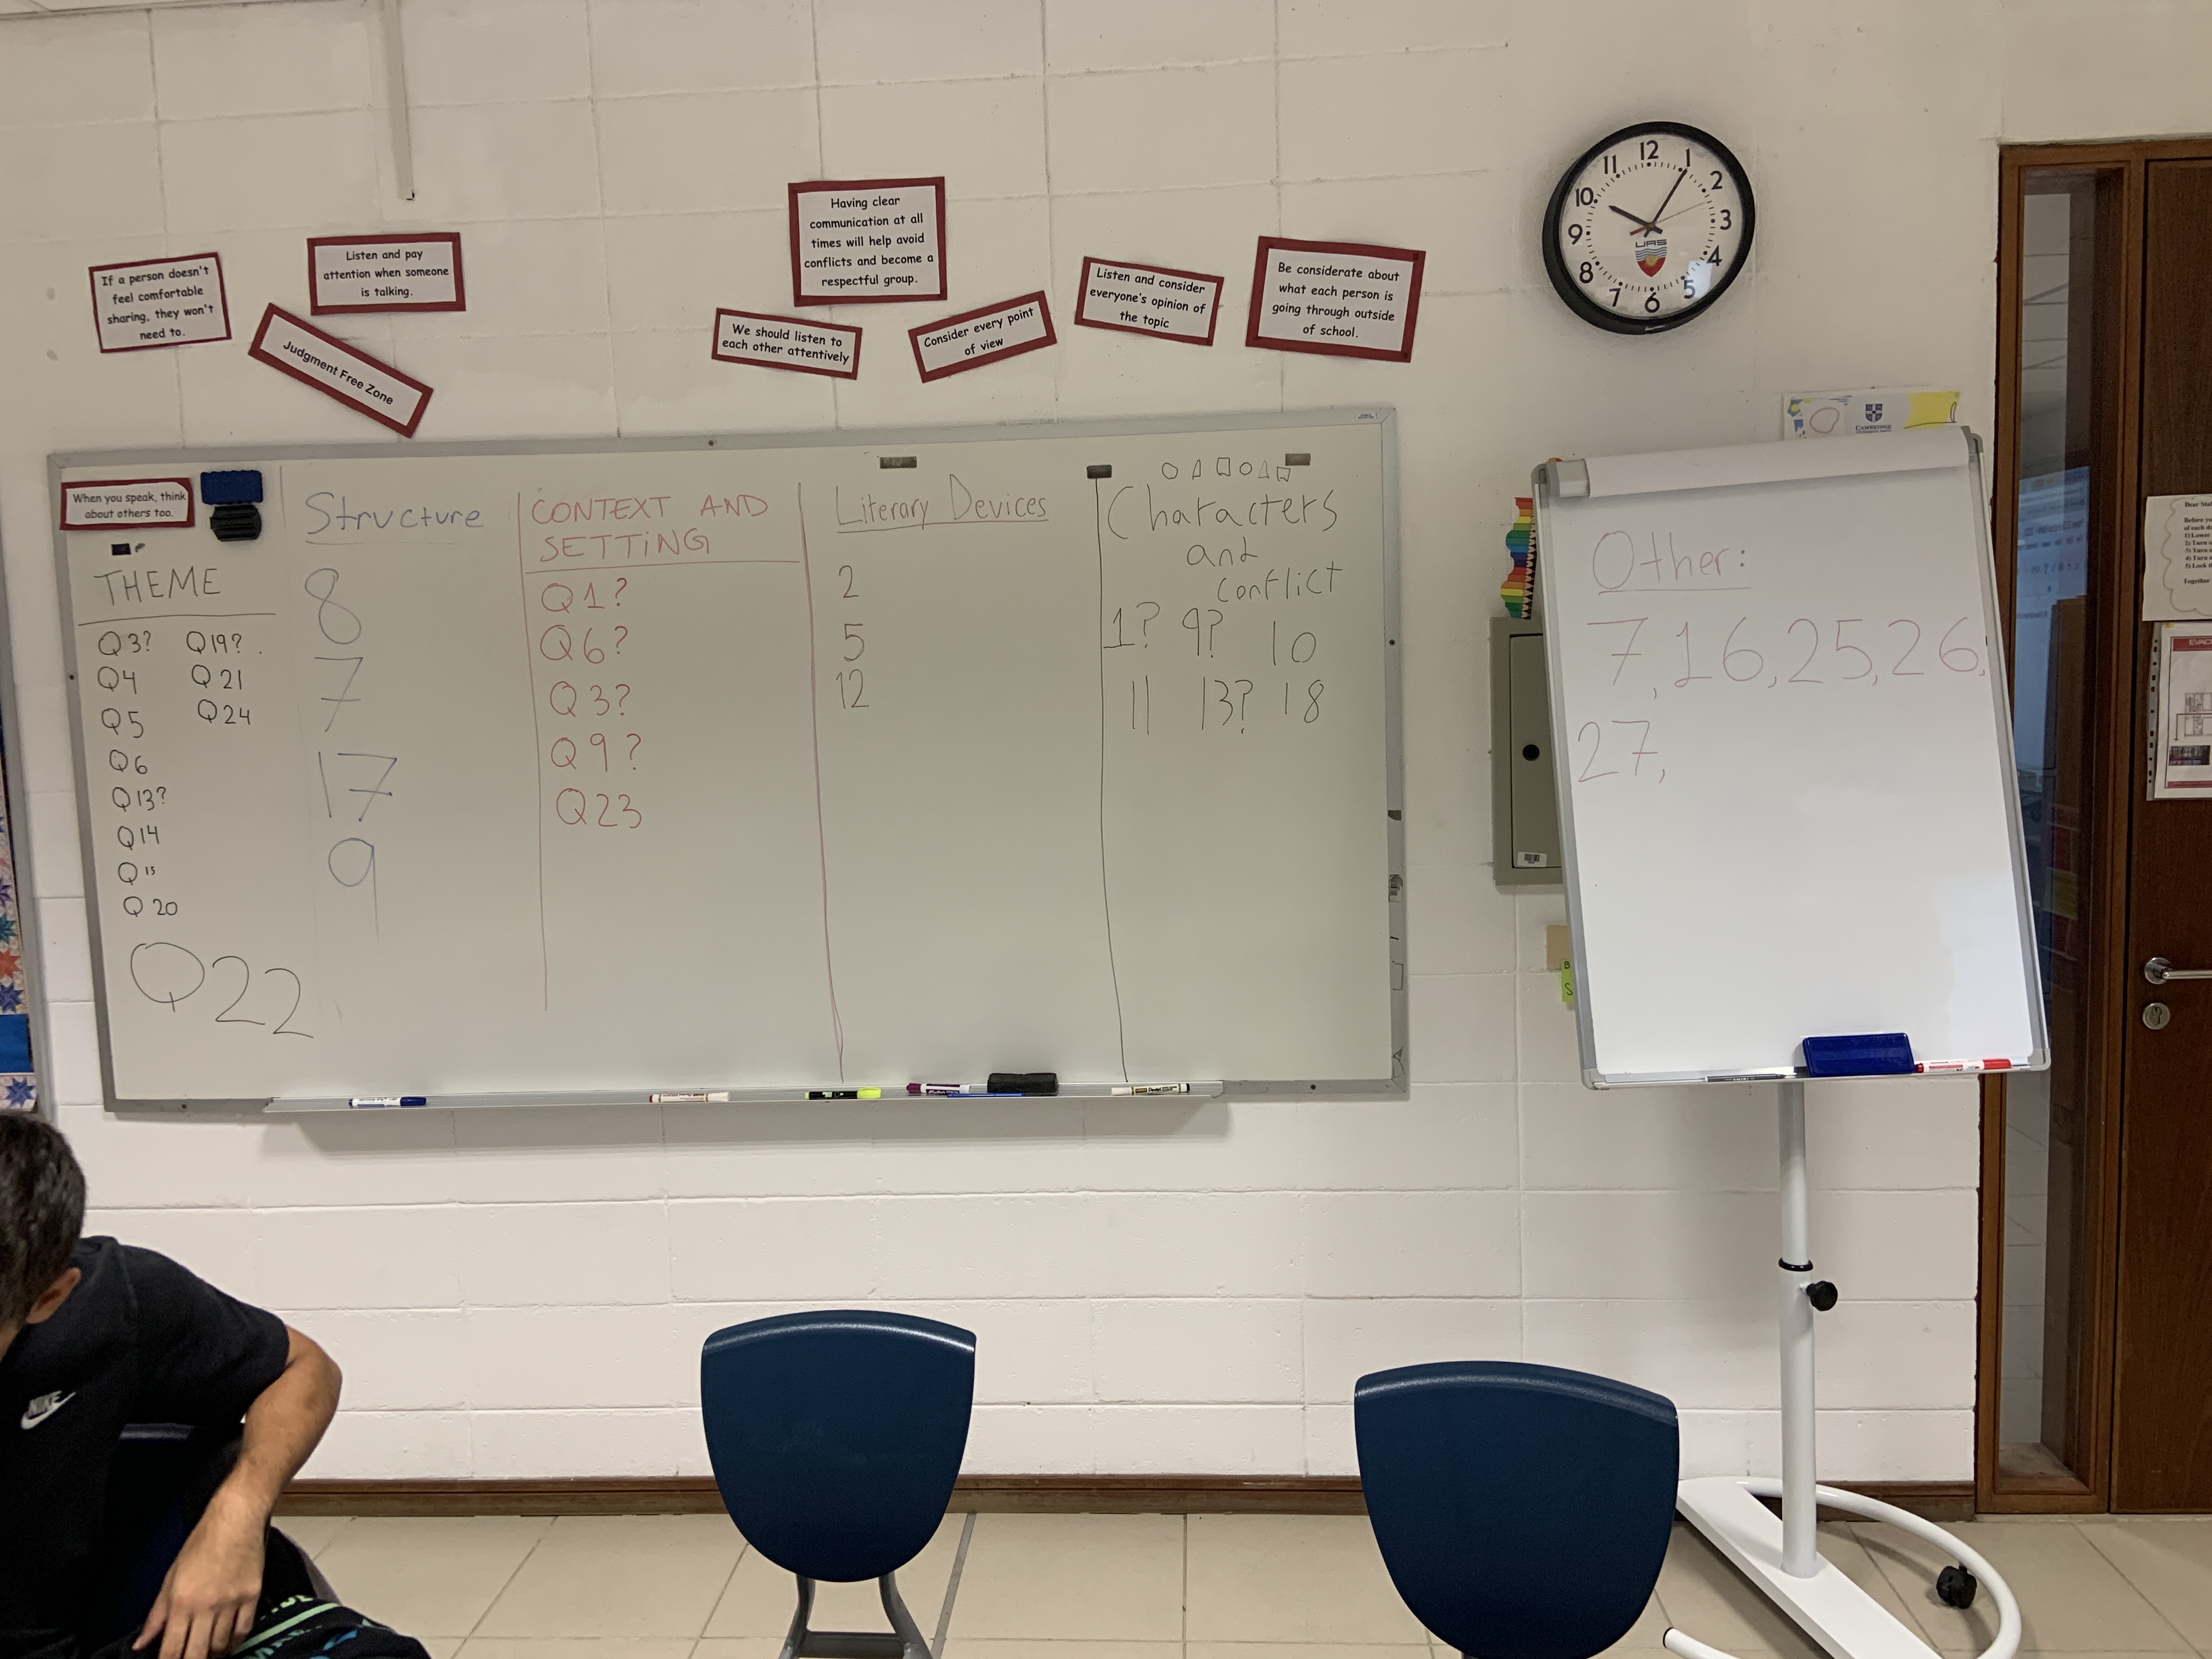 If a person doesn't
feel comfortable
sharing, they won't
need to.
Listen and pay
attention when someone
is talking.
Judgment Free Zone
Having clear
communication at all
times will help avoid
conflicts and become a
respectful group.
We should listen to
each other attentively
Consider every point
of view
Listen and consider
everyone's opinion of
the topic
Be considerate about
what each person is
going through outside
of school.
12
1
2
3
4
5
6
7
8
9
10
11
UAS
CAMBRIDGE
When you speak, think
about others too.
THEME
Q3? Q19?
Q4 Q21
Q5 Q24
Q6
Q13?
Q14
Q15
Q20
Q22
Structure
8
7
17
9
CONTEXT AND
SETTING
Q1?
Q6?
Q3?
Q9?
Q23
Literary Devices
2
5
12
Characters
and
conflict
1? 9? 10
11 13? 18
Other:
7, 16, 25, 26,
27,
NIKE